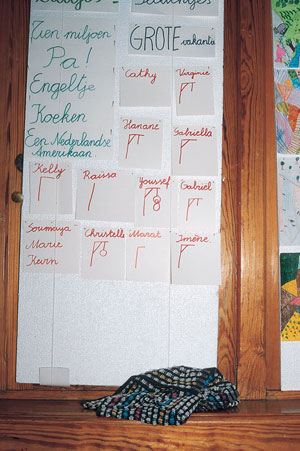 Tien miljoen
Pa!
Engeltje
Koeken
Een Nederlandse
Amerikaan
GROTE vakantie
Cathy
Virginie
Hanane
Gabriella
Kelly
Raissa
Youssef
Gabriel
Soumaya
Marie
Kevin
Christelle
Marat
Imène